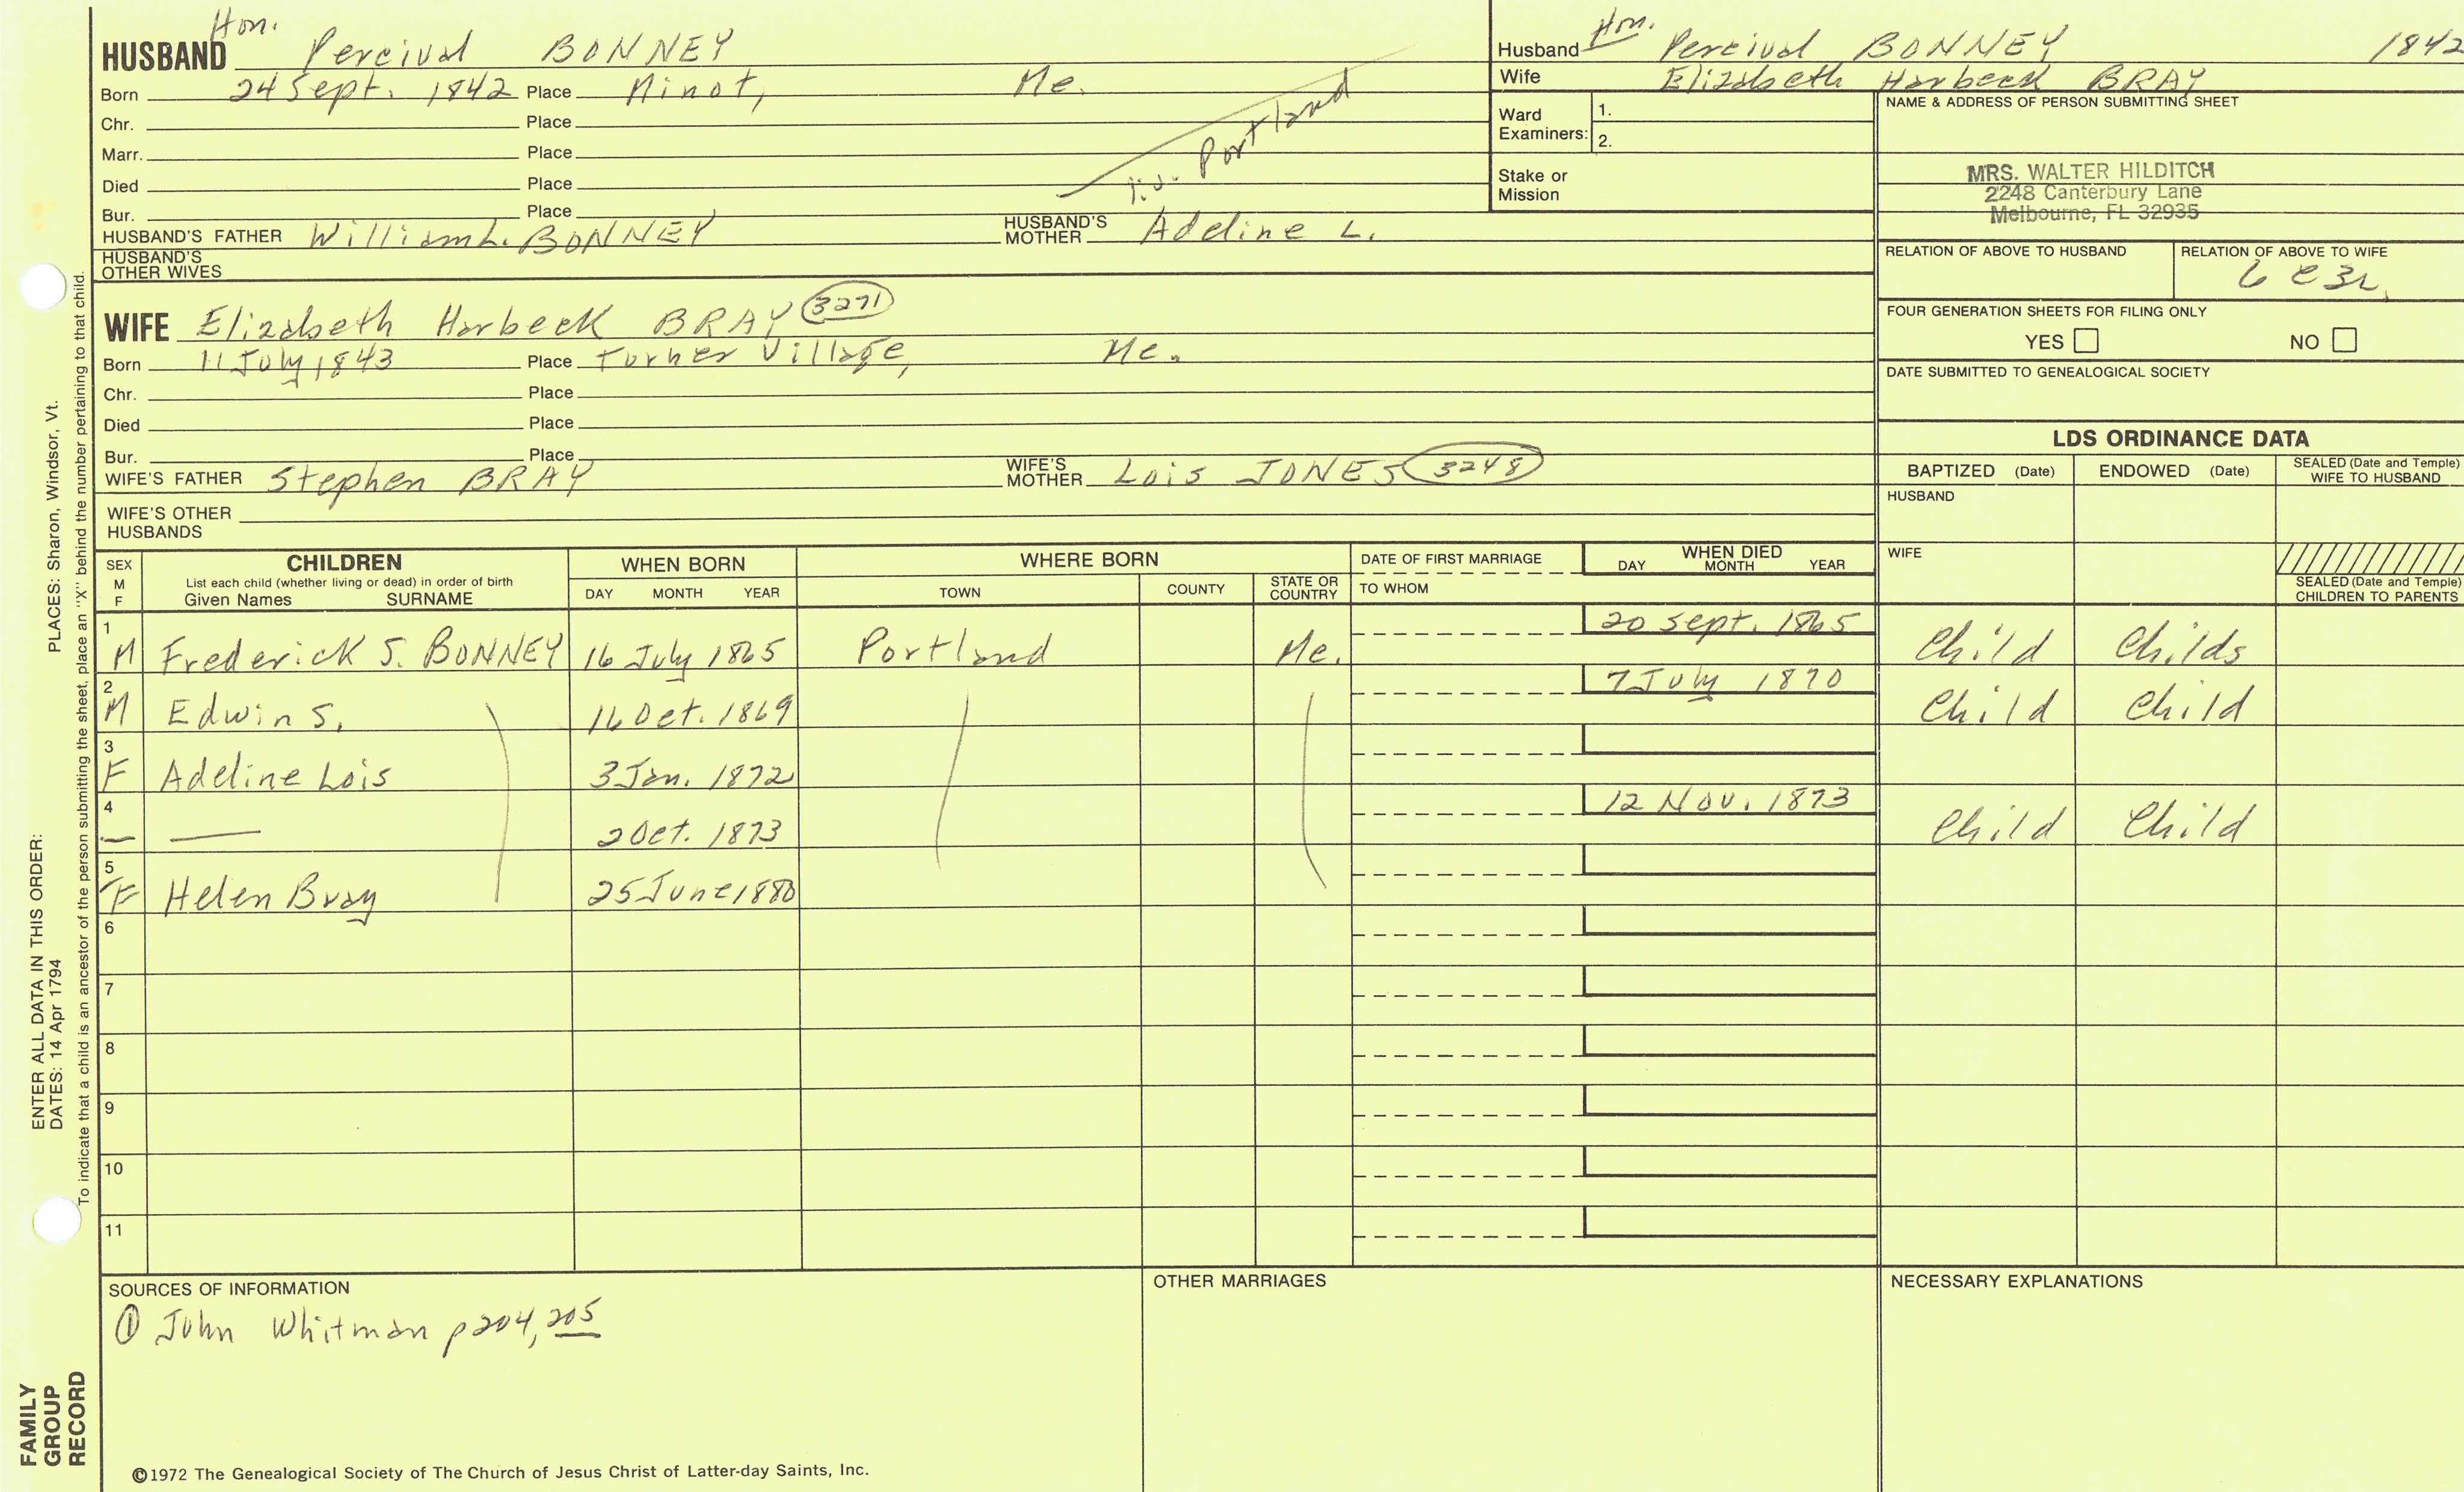 Hon.
HUSBAND Percival BONNEY
Born 24 Sept. 1842 Place Minot, Me.
Chr. Place
Marr. Place
Died Place
Bur. Place
i.v. Portland
HUSBAND'S FATHER William L. BONNEY HUSBAND'S MOTHER Adeline L.
HUSBAND'S OTHER WIVES
WIFE Elizabeth Harbeck BRAY 3271
Born 11 July 1843 Place Turner Village, Me.
Chr. Place
Died Place
Bur. Place
WIFE'S FATHER Stephen BRAY WIFE'S MOTHER Lois JONES 3248
WIFE'S OTHER HUSBANDS
Husband Hon. Percival BONNEY 1842
Wife Elizabeth Harbeck BRAY
Ward Examiners: 1.
2.
Stake or Mission
NAME & ADDRESS OF PERSON SUBMITTING SHEET
MRS. WALTER HILDITCH
2248 Canterbury Lane
Melbourne, FL 32935
RELATION OF ABOVE TO HUSBAND
RELATION OF ABOVE TO WIFE
6 C 3R
FOUR GENERATION SHEETS FOR FILING ONLY
YES NO
DATE SUBMITTED TO GENEALOGICAL SOCIETY
LDS ORDINANCE DATA
BAPTIZED (Date) ENDOWED (Date) SEALED (Date and Temple) WIFE TO HUSBAND
HUSBAND
WIFE
SEALED (Date and Temple) CHILDREN TO PARENTS
SEX M F
CHILDREN
List each child (whether living or dead) in order of birth
Given Names SURNAME
WHEN BORN
DAY MONTH YEAR
WHERE BORN
TOWN COUNTY STATE OR COUNTRY
DATE OF FIRST MARRIAGE
TO WHOM
WHEN DIED
DAY MONTH YEAR
1 M Frederick S. BONNEY 16 July 1865 Portland Me. 20 Sept. 1865 Child Childs
2 M Edwin S. 16 Oct. 1869 7 July 1870 Child Child
3 F Adeline Lois 3 Jan. 1872
4 — — 2 Oct. 1873 12 Nov. 1873 Child Child
5 F Helen Bray 25 June 1880
6
7
8
9
10
11
SOURCES OF INFORMATION
① John Whitman p 204, 205
OTHER MARRIAGES
NECESSARY EXPLANATIONS
©1972 The Genealogical Society of The Church of Jesus Christ of Latter-day Saints, Inc.
FAMILY GROUP RECORD
ENTER ALL DATA IN THIS ORDER:
DATES: 14 Apr 1794 PLACES: Sharon, Windsor, Vt.
To indicate that a child is an ancestor of the person submitting the sheet, place an "X" behind the number pertaining to that child.